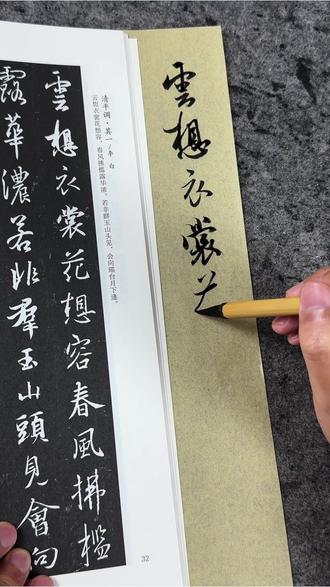 雲想衣裳
雲想衣裳花想容春風拂檻
露華濃若非群玉山頭見會向
清平调·其一/李白
云想衣裳花想容，春风拂槛露华浓。若非群玉山头见，会向瑶台月下逢。
32